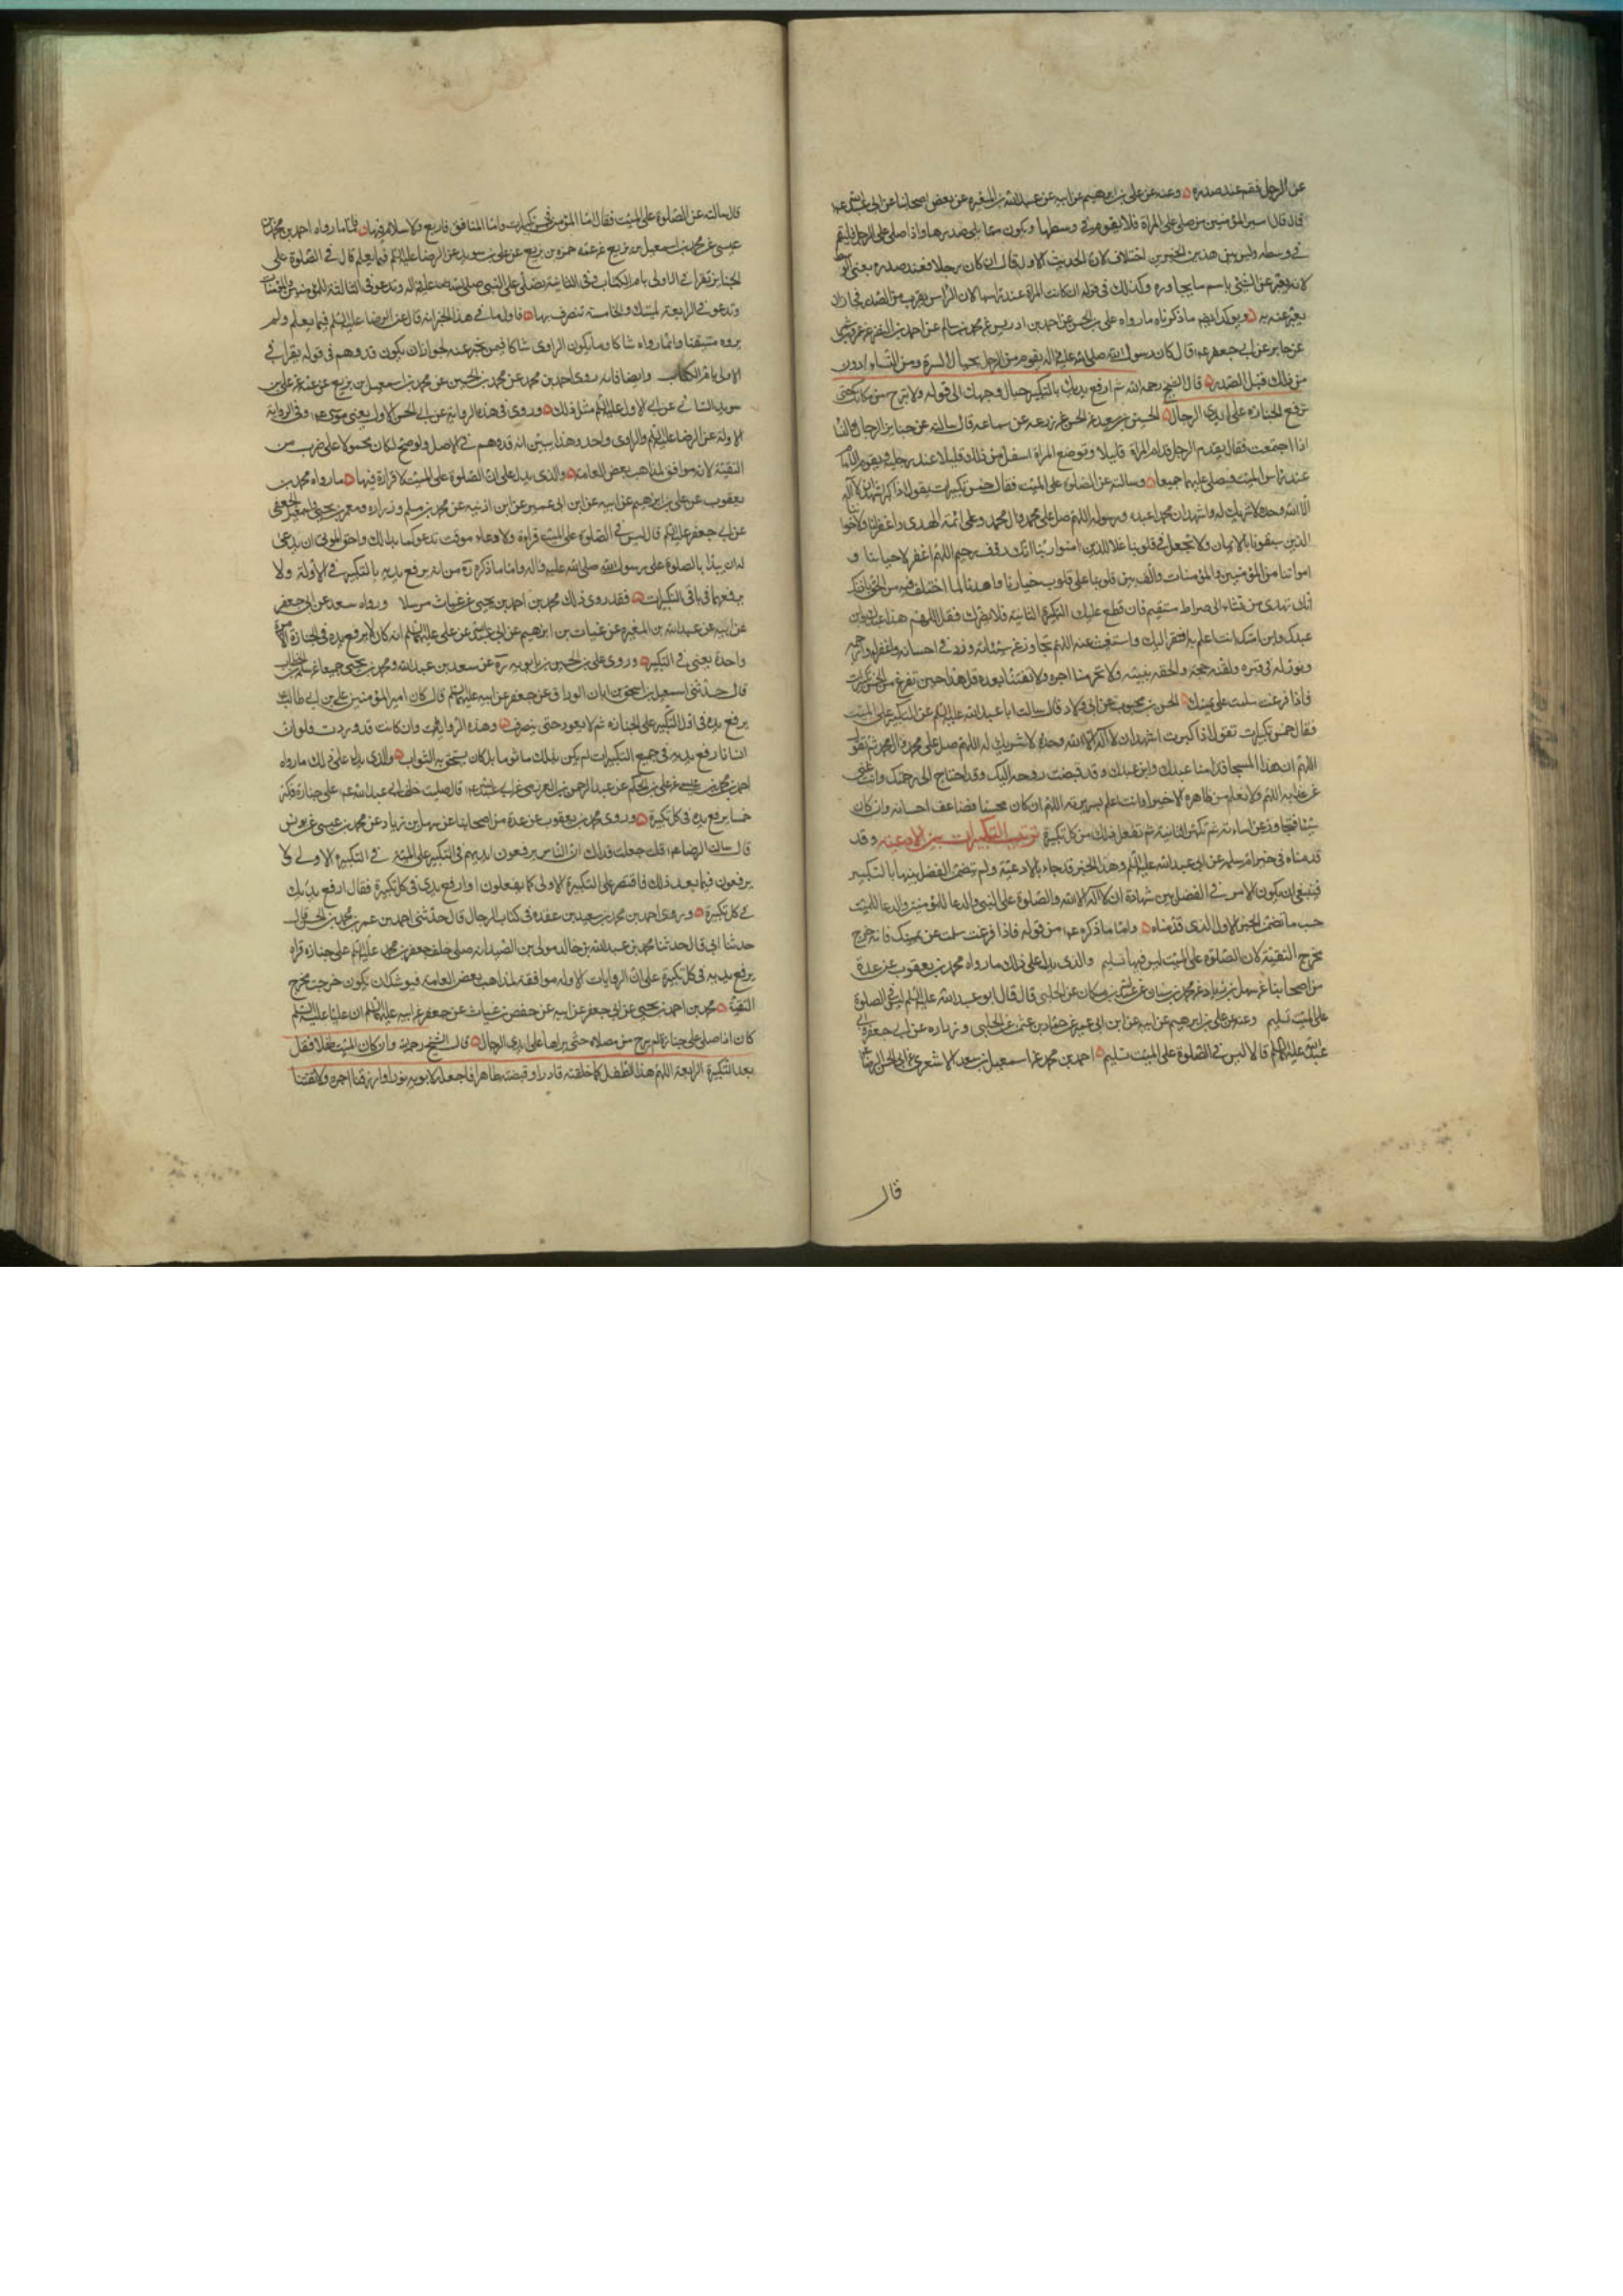 عن الرجل فقم عند صدره وعنه عن علي بن ابرهيم عن ابيه عن عبد الله بن المغيره عن بعض اصحابنا عن ابي عبد الله ع
قال قال امير المؤمنين من صلى على امراة فلا يقوم في وسطها ويكون مما يلي صدرها واذا صلى على الرجل فليقم
في وسطه وليس بين هذين الخبرين اختلاف لان الحديث الاول قال ان كان رجلا فعند صدره يعني الوسط
لانه يعبر عن الشئ باسم ما يجاوره وكذلك في قوله ان كانت المراة عند راسها لان الراس يقرب من الصدر فجاز ان
يعبر عنه به ويؤكد ايضا ما ذكرناه ما رواه علي بن الحسين عن احمد بن ادريس عن محمد بن سالم عن احمد بن النضر عن عمرو بن شمر
عن جابر عن ابي جعفر ع قال كان رسول الله صلى الله عليه واله يقوم من الرجل بحيال السرة ومن النساء ادون
من ذلك قبل الصدر قال الشيخ رحمه الله ثم ارفع يديك بالتكبير حيال وجهك الى قوله ولا تبرح من مكانك حتى
ترفع الجنازه على ايدي الرجال الحسين بن سعيد عن الحسن عن زرعه عن سماعه قال سالته عن جنايز الرجال والنسا
اذا اجتمعت فقال يقدم الرجل قدام المراة قليلا وتوضع المراة اسفل من ذلك قليلا عند رجليه ويقوم الامام
عند راس الميت فيصلي عليهما جميعا وسالته عن الصلوة على الميت فقال خمس تكبيرات يقول اذا كبر اشهد ان لا اله
الا الله وحده لا شريك له واشهد ان محمدا عبده ورسوله اللهم صل على محمد وال محمد وعلى ائمة الهدى واغفر لنا ولاخواننا
الذين سبقونا بالايمان ولا تجعل في قلوبنا غلا للذين امنوا ربنا انك رؤف رحيم اللهم اغفر لاحيائنا و
امواتنا من المؤمنين والمؤمنات والف بين قلوبنا على قلوب خيارنا واهدنا لما اختلف فيه من الحق باذنك
انك تهدي من تشاء الى صراط مستقيم فان قطع عليك التكبيرة الثانية فلا يضرك فقل اللهم هذا عبدك وابن
عبدك وابن امتك انت اعلم به افتقر اليك واستغنيت عنه اللهم تجاوز عن سيئاته وزد في احسانه واغفر له وارحمه
ونور له في قبره ولقنه حجته والحقه بنبيه ولا تحرمنا اجره ولا تفتنا بعده قل هذا حين تفرغ من الخمس تكبيرات
فاذا فرغت سلمت على يمينك الحسن بن محبوب عن ابي ولاد قال سالت ابا عبد الله عليه السلم عن التكبير على الميت
فقال خمس تكبيرات تقول اذا كبرت اشهد ان لا اله الا الله وحده لا شريك له اللهم صل على محمد وال محمد ثم تقول
اللهم ان هذا المسجا قدامنا عبدك وابن عبدك وقد قبضت روحه اليك وقد احتاج الى رحمتك وانت غني
عن عذابه اللهم ولا نعلم من ظاهره الا خيرا وانت اعلم بسريرته اللهم ان كان محسنا فضاعف احسانه وان كان
مسيئا فتجاوز عن اساءته ثم تكبر الثانية ثم تفعل ذلك من كل تكبيرة ترتيب التكبيرات بين الادعيه وقد
قدمناه في خبر ام سلمه عن ابي عبد الله عليه السلم وهذا الخبر قد جاء بالادعية ولم يتضمن الفصل بينها بالتكبير
فينبغي ان يكون الامر في الفصل بين شهادة ان لا اله الا الله والصلوة على النبي والدعا للمؤمنين والدعا للميت
حسب ما تضمن الخبر الاول الذي قدمناه واما ما ذكره ع من قوله فاذا فرغت سلمت عن يمينك فانه خرج
مخرج التقية لان الصلوة على الميت ليس فيها تسليم والذي يدل على ذلك ما رواه محمد بن يعقوب عن عدة
من اصحابنا عن سهل بن زياد عن محمد بن سنان عن عبد الله بن مسكان عن الحلبي قال قال ابو عبد الله عليه السلم ليس في الصلوة
على الميت تسليم وعنه عن علي بن ابرهيم عن ابيه عن ابن ابي عمير عن حماد بن عثمن عن الحلبي وزراره عن ابي جعفر وابي
عبد الله عليهما السلم قالا ليس في الصلوة على الميت تسليم احمد بن محمد عن اسمعيل بن سعد الاشعري عن ابي الحسن الرضا ع
قال
قال سالته عن الصلوة على الميت فقال اما المؤمن فخمس تكبيرات واما المنافق فاربع ولا سلام فيها فاما ما رواه احمد بن محمد بن
عيسى عن محمد بن اسمعيل بن بزيع عن عمه حمزه بن بزيع عن علي بن سويد عن الرضا عليه السلم فيما يعلم قال في الصلوة على
الجنايز تقرا في الاولى بام الكتاب وفي الثانية تصلي على النبي صلى الله عليه واله وتدعو في الثالثة للمؤمنين والمؤمنات
وتدعو في الرابعة لميتك والخامسة تنصرف بها فاول ما في هذا الخبر انه قال عن الرضا عليه السلم فيما يعلم ولم
يروه متيقنا وانما رواه شاكا وما يكون الراوي شاكا فيمن يخبر عنه لجواز ان يكون قد وهم في قوله يقرا في
الاولى بام الكتاب وايضا فانه روى احمد بن محمد عن محمد بن الحسين عن محمد بن اسمعيل بن بزيع عن عمه عن علي بن
سويد السائي عن ابي الاول عليه السلم مثل ذلك وروى في هذه الرواية عن ابي الحسن الاول يعني موسى ع وفي الرواية
الاولة عن الرضا عليه السلم والراوي واحد وهذا يبين انه قد وهم في الاصل ولو صح لكان محمولا على ضرب من
التقية لانه موافق لمذاهب بعض العامة والذي يدل على ان الصلوة على الميت لا قراءة فيها ما رواه محمد بن
يعقوب عن علي بن ابرهيم عن ابيه عن ابن ابي عمير عن ابن اذينه عن محمد بن مسلم وزراره ومعمر بن يحيى واسمعيل الجعفي
عن ابي جعفر عليه السلم قال ليس في الصلوة على الميت قراءة ولا دعاء موقت تدعو بما بدا لك واحق الموتى ان يدعى
له ان يبدا بالصلوة على رسول الله صلى الله عليه واله واما ما ذكره ره من انه يرفع يديه بالتكبير في الاولة ولا
يرفعهما في باقي التكبيرات فقد روى ذلك محمد بن احمد بن يحيى عن غياث مرسلا ورواه سعد عن ابي جعفر
عن ابيه عن عبد الله بن المغيره عن غياث بن ابرهيم عن ابي عبد الله عن علي عليهما السلم انه كان لا يرفع يده في الجنازة الا مرة
واحدة يعني في التكبير وروى علي بن الحسين بن بابويه ره عن سعد بن عبد الله ومحمد بن يحيى جميعا عن سلمه بن الخطاب
قال حدثني اسمعيل بن اسحق بن ابان الوراق عن جعفر عن ابيه عليهما السلم قال كان امير المؤمنين علي بن ابي طالب ع
يرفع يده في اول التكبير على الجنازه ثم لا يعود حتى ينصرف وهذه الروايات وان كانت قد وردت فلو ان
انسانا رفع يديه في جميع التكبيرات لم يكن بذلك ماثوما بل كان يستحق به الثواب والذي يدل على ذلك ما رواه
احمد بن محمد بن عيسى عن علي بن الحكم عن عبد الرحمن بن العزرمي عن ابي عبد الله ع قال صليت خلف ابي عبد الله ع على جنازة فكبر
خمسا يرفع يده في كل تكبيرة وروى محمد بن يعقوب عن عدة من اصحابنا عن سهل بن زياد عن محمد بن عيسى عن يونس
قال سالت الرضا ع قلت جعلت فداك ان الناس يرفعون ايديهم في التكبير على الميت في التكبيره الاولى ولا
يرفعون فيما بعد ذلك فاقتصر على التكبيرة الاولى كما يفعلون او ارفع يدي في كل تكبيرة فقال ارفع يديك
في كل تكبيرة وروى احمد بن محمد بن سعيد بن عقده في كتاب الرجال قال حدثني احمد بن عمر بن محمد بن الحسن قال
حدثنا ابي قال حدثنا محمد بن عبد الله بن خالد مولى بني الصيدا انه صلى خلف جعفر بن محمد عليه السلم على جنازه فراه
يرفع يديه في كل تكبيرة على ان الروايات الاولة موافقة لمذاهب بعض العامة فيوشك ان يكون خرجت مخرج
التقية محمد بن احمد بن يحيى عن ابي جعفر عن ابيه عن حفص بن غياث عن جعفر عن ابيه عليهما السلم ان عليا عليه السلم
كان اذا صلى على جنازة لم يبرح من مصلاه حتى يراها على ايدي الرجال قال الشيخ رحمه الله وان كان الميت طفلا فقل
بعد التكبيرة الرابعة اللهم هذا الطفل كما خلقته قادرا وقبضته طاهرا فاجعله لابويه نورا وارزقنا اجره ولا تفتنا